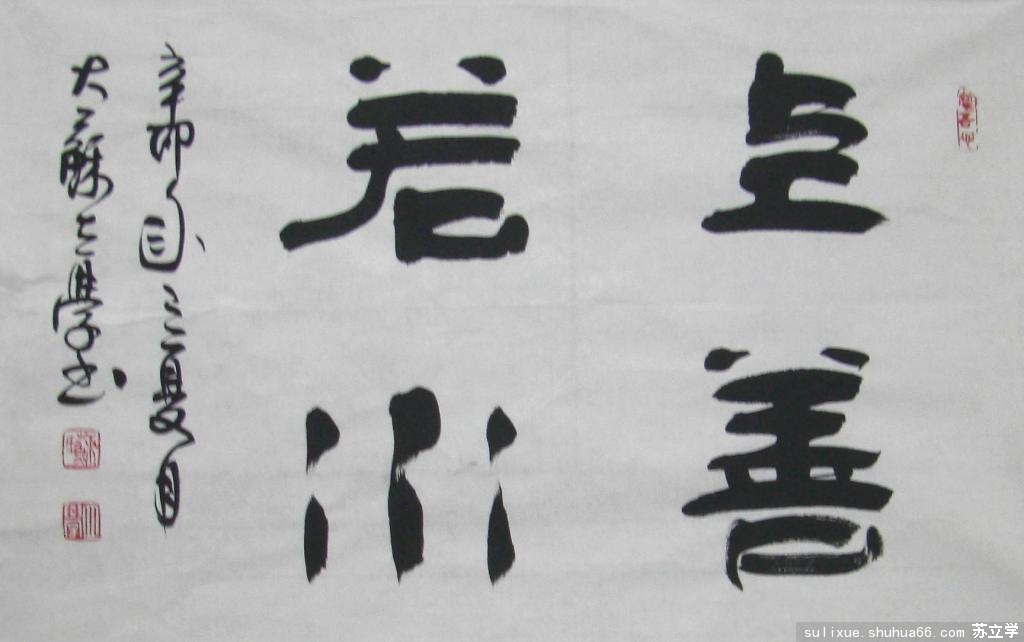 上善
若水
辛卯夏月
大蘇立學书
sulixue.shuhua66.com 苏立学